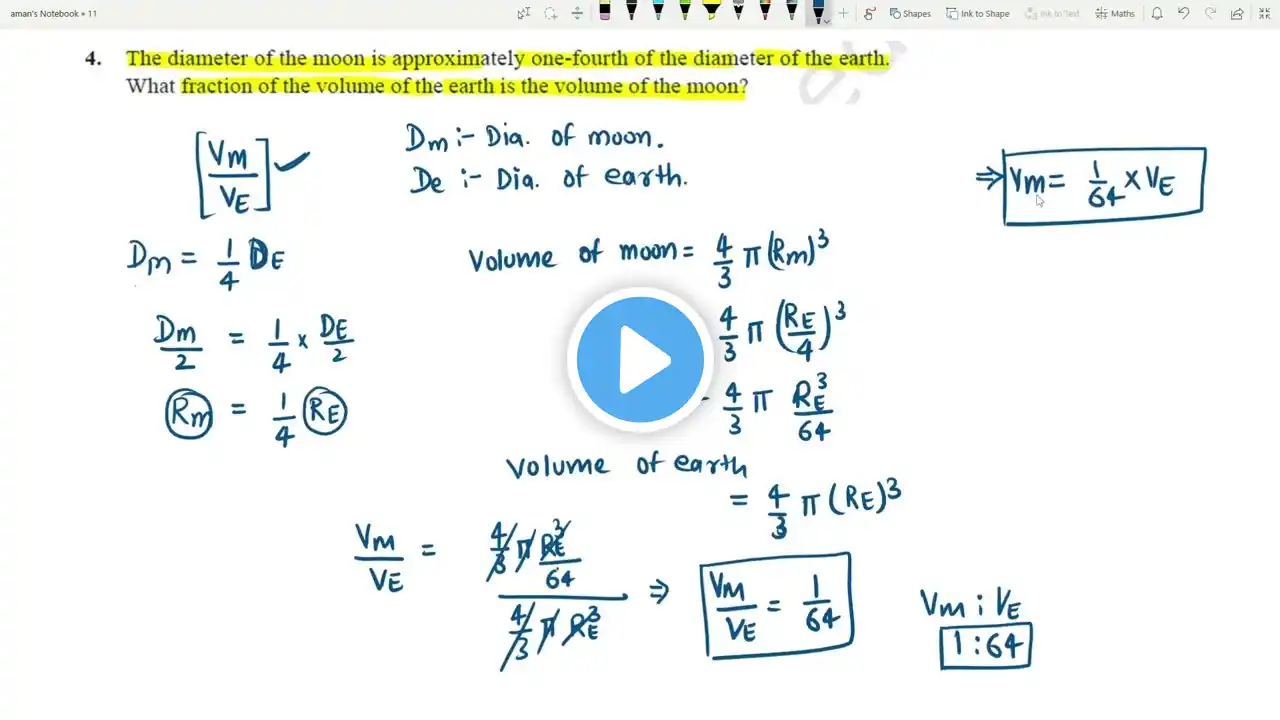 aman's Notebook » 11
Shapes Ink to Shape Ink to Text Maths
4. The diameter of the moon is approximately one-fourth of the diameter of the earth.
What fraction of the volume of the earth is the volume of the moon?
[VM/VE] ✓
Dm :- Dia. of moon.
De :- Dia. of earth.
⇒ Vm = 1/64 × VE
Dm = 1/4 DE
Dm/2 = 1/4 × DE/2
Rm = 1/4 RE
Volume of moon = 4/3 π (Rm)³
4/3 π (RE/4)³
4/3 π RE³/64
Volume of earth
= 4/3 π (RE)³
VM/VE = 4/3 π RE³/64 / 4/3 π RE³ ⇒ VM/VE = 1/64
VM : VE
1 : 64